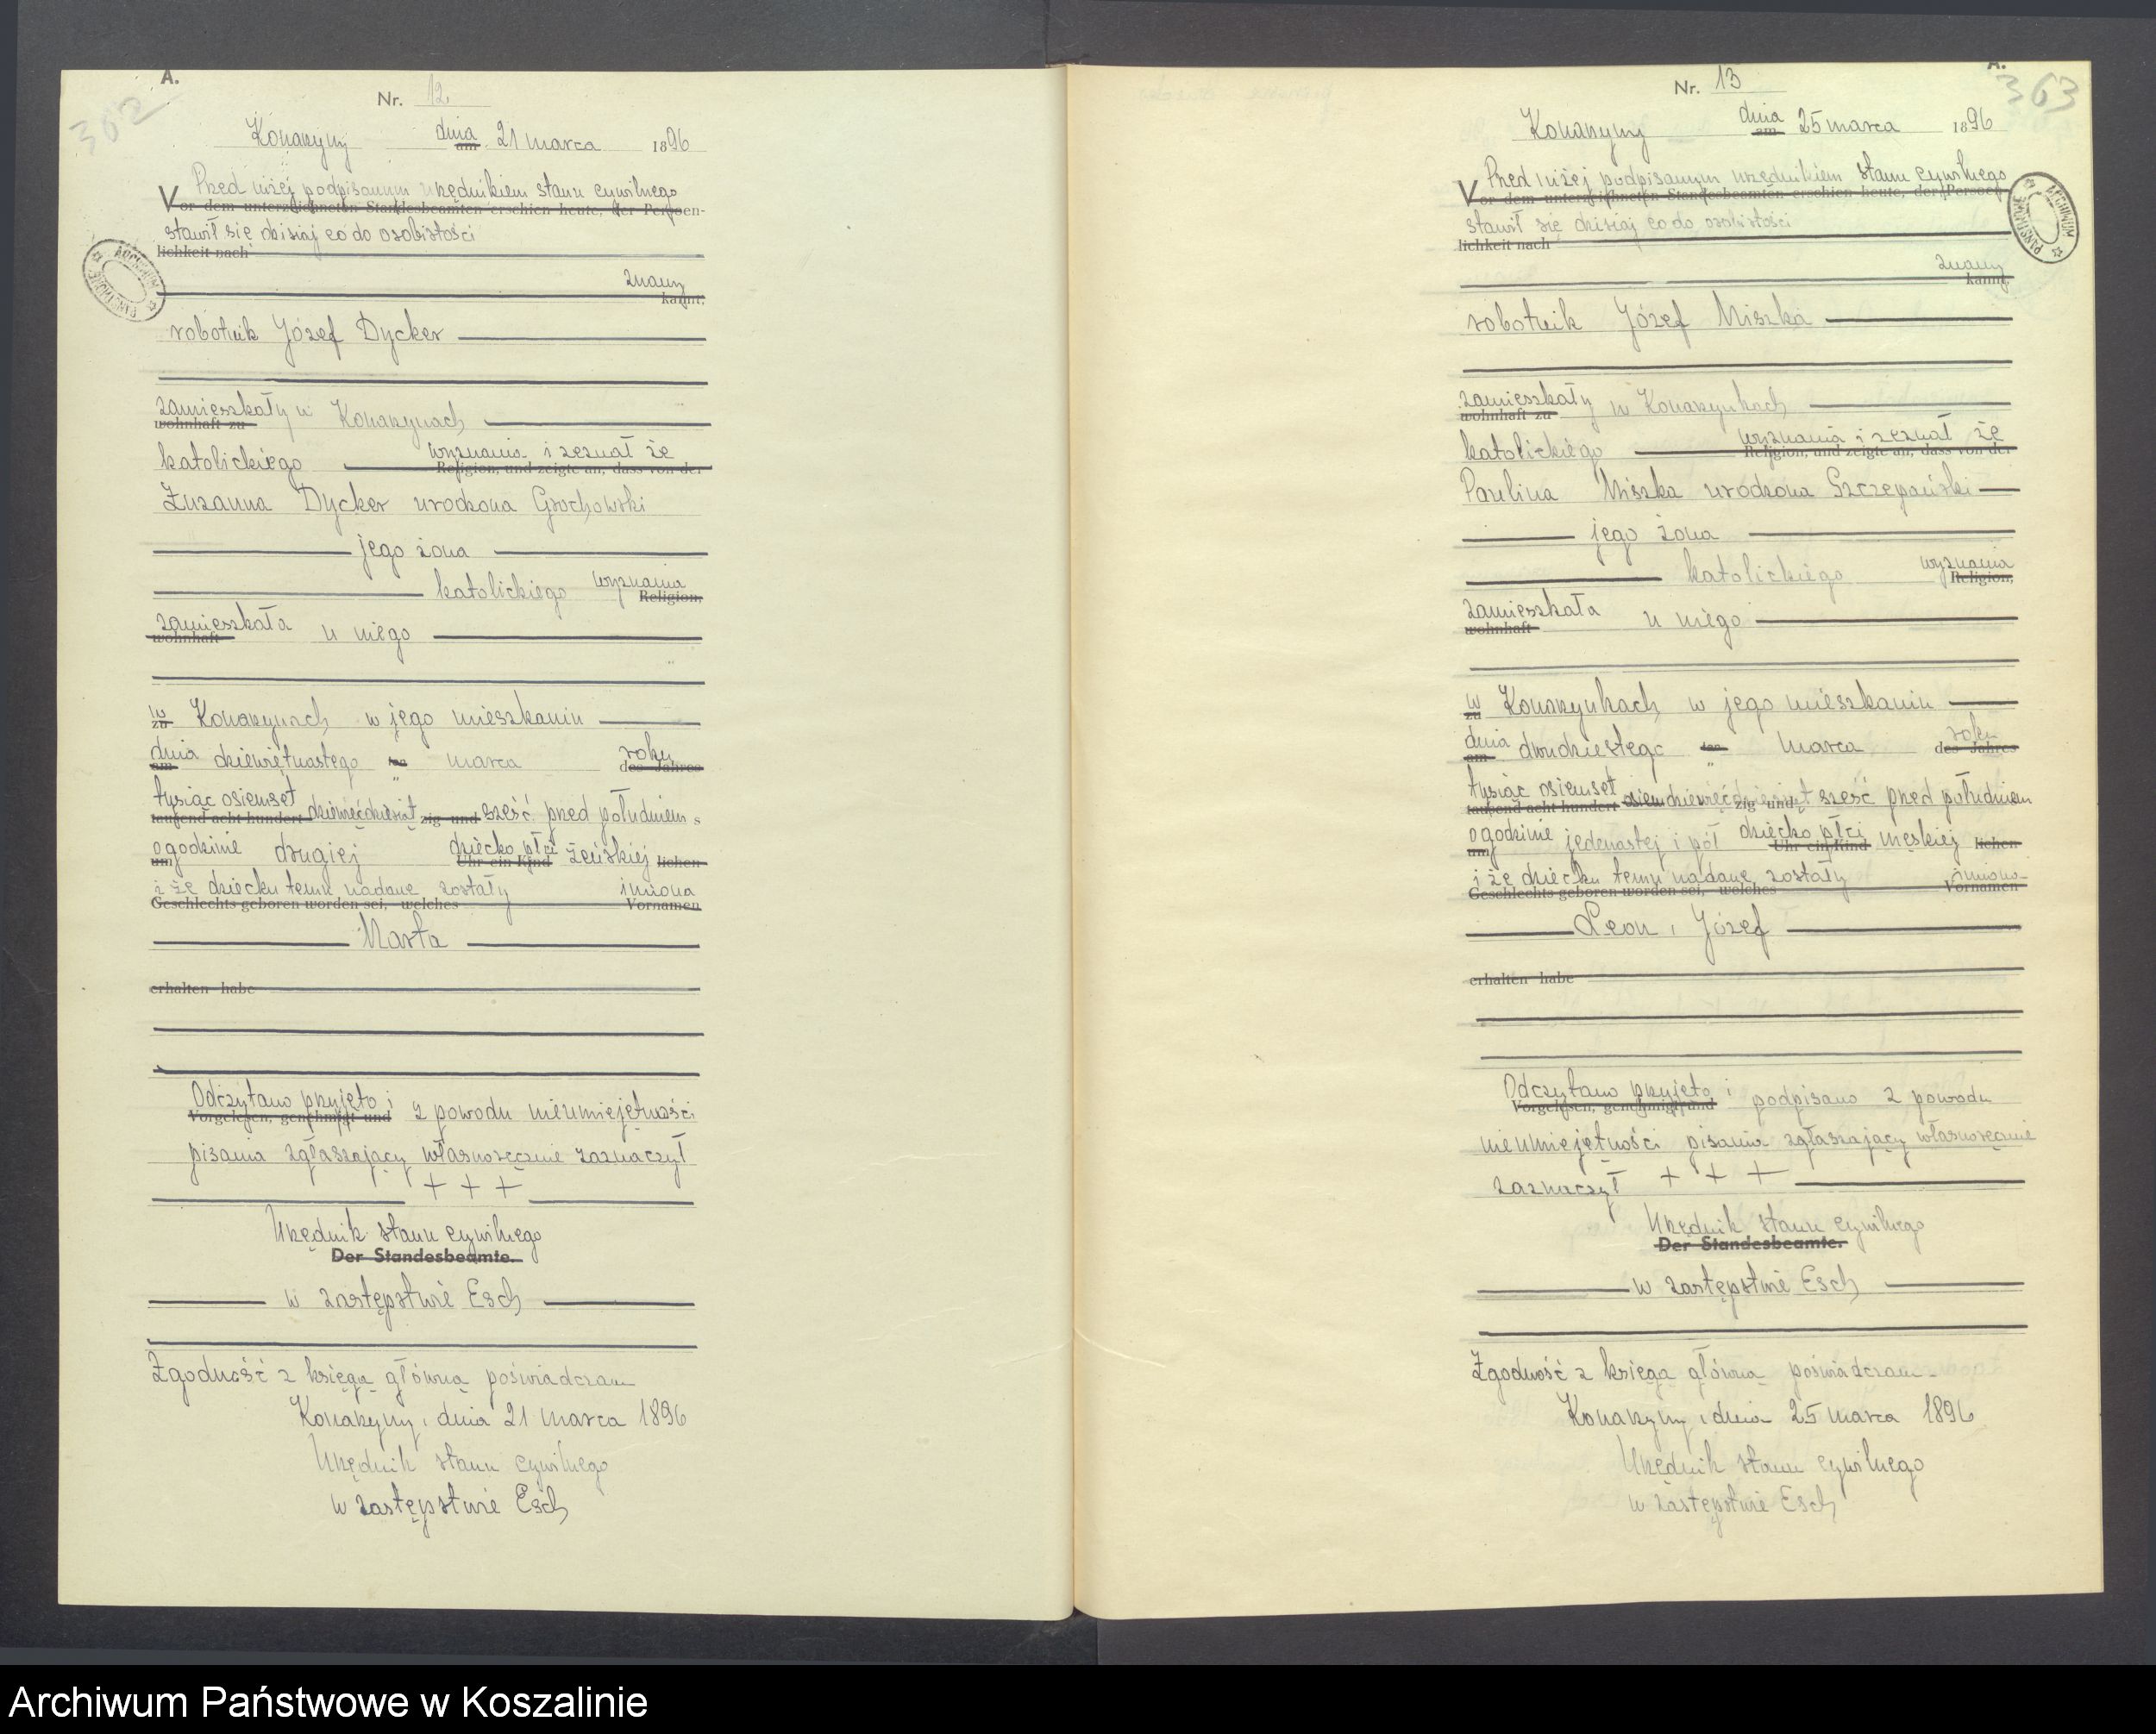 302
A.
Nr. 12.
Konarzyny dnia am 21 marca 1896
Przed niżej podpisanym urzędnikiem stanu cywilnego
Vor dem unterzeichneten Standesbeamten erschien heute, der Persoen-
stawił się dzisiaj co do osobistości
lichkeit nach
znany
kannt,
robotnik Józef Dycker
zamieszkały w Konarzynach
wohnhaft zu
katolickiego wyznania i zeznał że
Religion, und zeigte an, dass von der
Zuzanna Dycker urodzona Grochowski
jego żona
katolickiego wyznania
Religion,
zamieszkała u niego
wohnhaft
w Konarzynach w jego mieszkaniu
zu
dnia dziewiętnastego ten marca roku
am des Jahres
tysiąc osiemset dziewięćdziesiąt zig und sześć przed południem s
tausend acht hundert
o godzinie drugiej dziecko płci żeńskiej lichen
um Uhr ein Kind
i że dziecku temu nadane zostały imiona
Geschlechts geboren worden sei, welches Vornamen
Marta
erhalten habe
Odczytano przyjęto i z powodu nieumiejętności
Vorgelesen, genehmigt und
pisania zgłaszający własnoręcznie zaznaczył
+ + +
Urzędnik stanu cywilnego
Der Standesbeamte.
w zastępstwie Esch
Zgodność z księgą główną poświadczam
Konarzyny, dnia 21 marca 1896
Urzędnik stanu cywilnego
w zastępstwie Esch
ARCHIWUM PAŃSTWOWE
A.
363
Nr. 13
Konarzyny dnia am 25 marca 1896
Przed niżej podpisanym urzędnikiem stanu cywilnego
Vor dem unterzeichneten Standesbeamten erschien heute, der Persoen
stawił się dzisiaj co do osobistości
lichkeit nach
znany
kannt,
robotnik Józef Miszka
zamieszkały w Konarzynkach
wohnhaft zu
katolickiego wyznania i zeznał że
Religion, und zeigte an, dass von der
Paulina Miszka urodzona Szczepański
jego żona
katolickiego wyznania
Religion,
zamieszkała u niego
wohnhaft
w Konarzynkach w jego mieszkaniu
zu
dnia dwudziestego ten marca roku
am des Jahres
tysiąc osiemset osiem dziewięćdziesiąt zig und sześć przed południem
tausend acht hundert
o godzinie jedenastej i pół dziecko płci męskiej lichen
um Uhr ein Kind
i że dziecku temu nadane zostały imiona
Geschlechts geboren worden sei, welches Vornamen
Leon, Józef
erhalten habe
Odczytano przyjęto i podpisano z powodu
Vorgelesen, genehmigt und
nieumiejętności pisania zgłaszający własnoręcznie
zaznaczył + + +
Urzędnik stanu cywilnego
Der Standesbeamte.
w zastępstwie Esch
Zgodność z księgą główną poświadczam
Konarzyny, dnia 25 marca 1896
Urzędnik stanu cywilnego
w zastępstwie Esch
ARCHIWUM PAŃSTWOWE
Archiwum Państwowe w Koszalinie